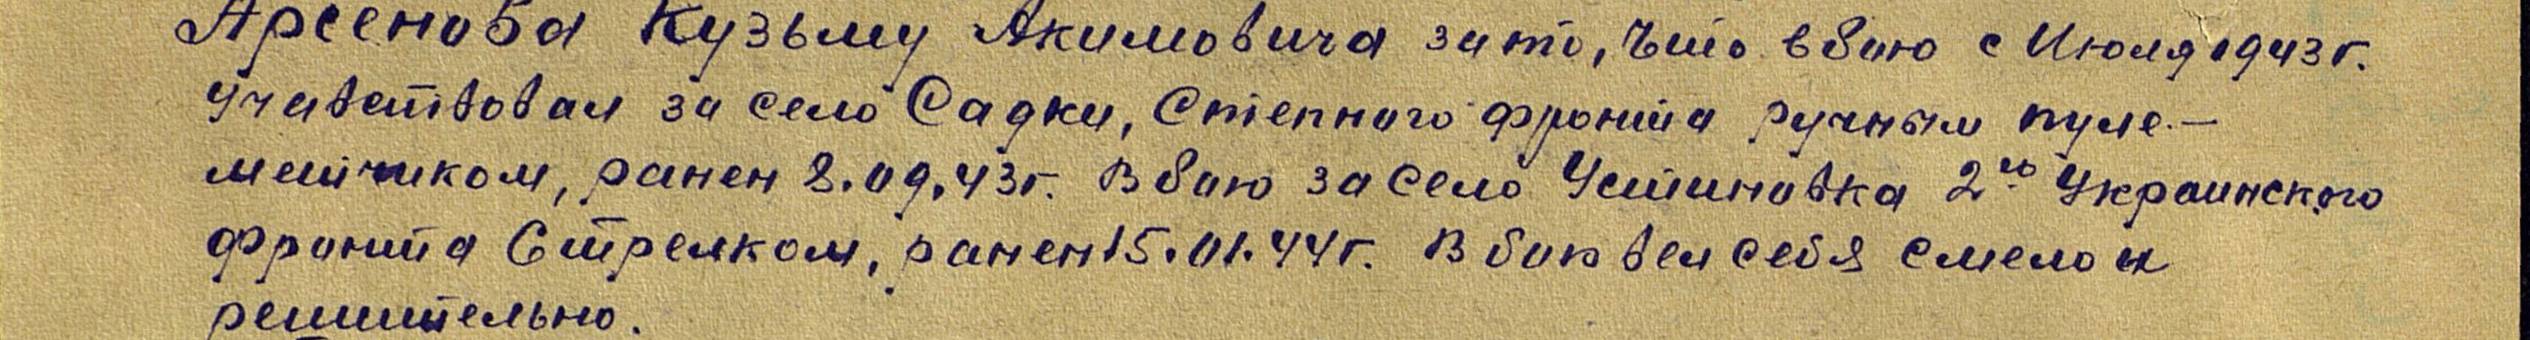 Арсенова Кузьму Акимовича за то, что в бою с Июля 1943 г.
участвовал за село Садки, Степного фронта ручным пуле-
метчиком, ранен 8.09.43г. В бою за село Устиновка 2го Украинского
фронта Стрелком, ранен 15.01.44г. В бою вел себя смело и
решительно.